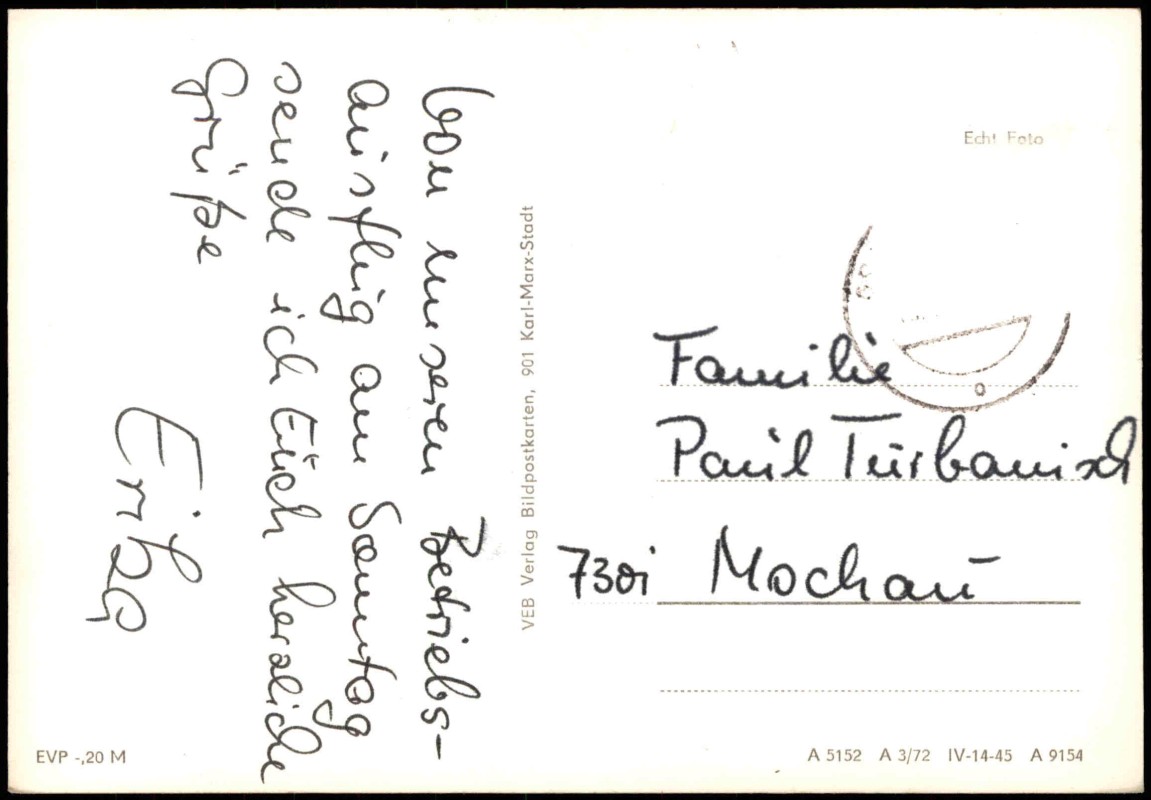 Von unseren Betriebs-
ausflug am Sonntag
sende ich Euch herzliche
Grüße
VEB Verlag Bildpostkarten, 901 Karl-Marx-Stadt
Echt Foto
Familie
Paul Turbanisch
7301 Mochau
EVP -,20 M
A 5152 A 3/72 IV-14-45 A 9154